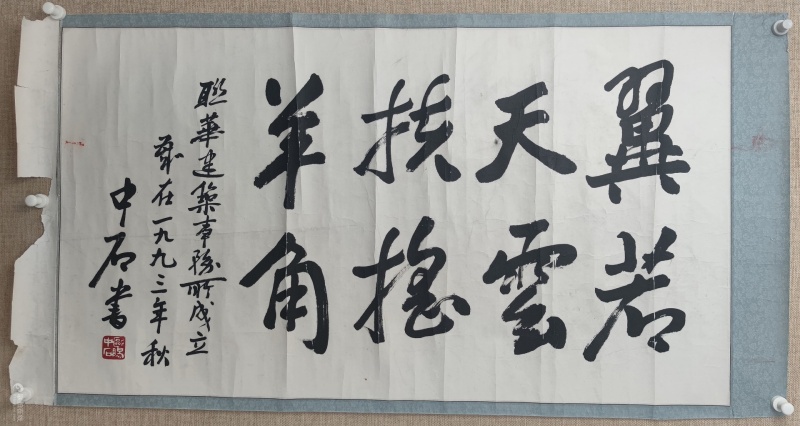 翼若
天雲
扶搖
羊角
聯華建築事務所成立
歲在一九九三年秋
中石書
歐陽中石